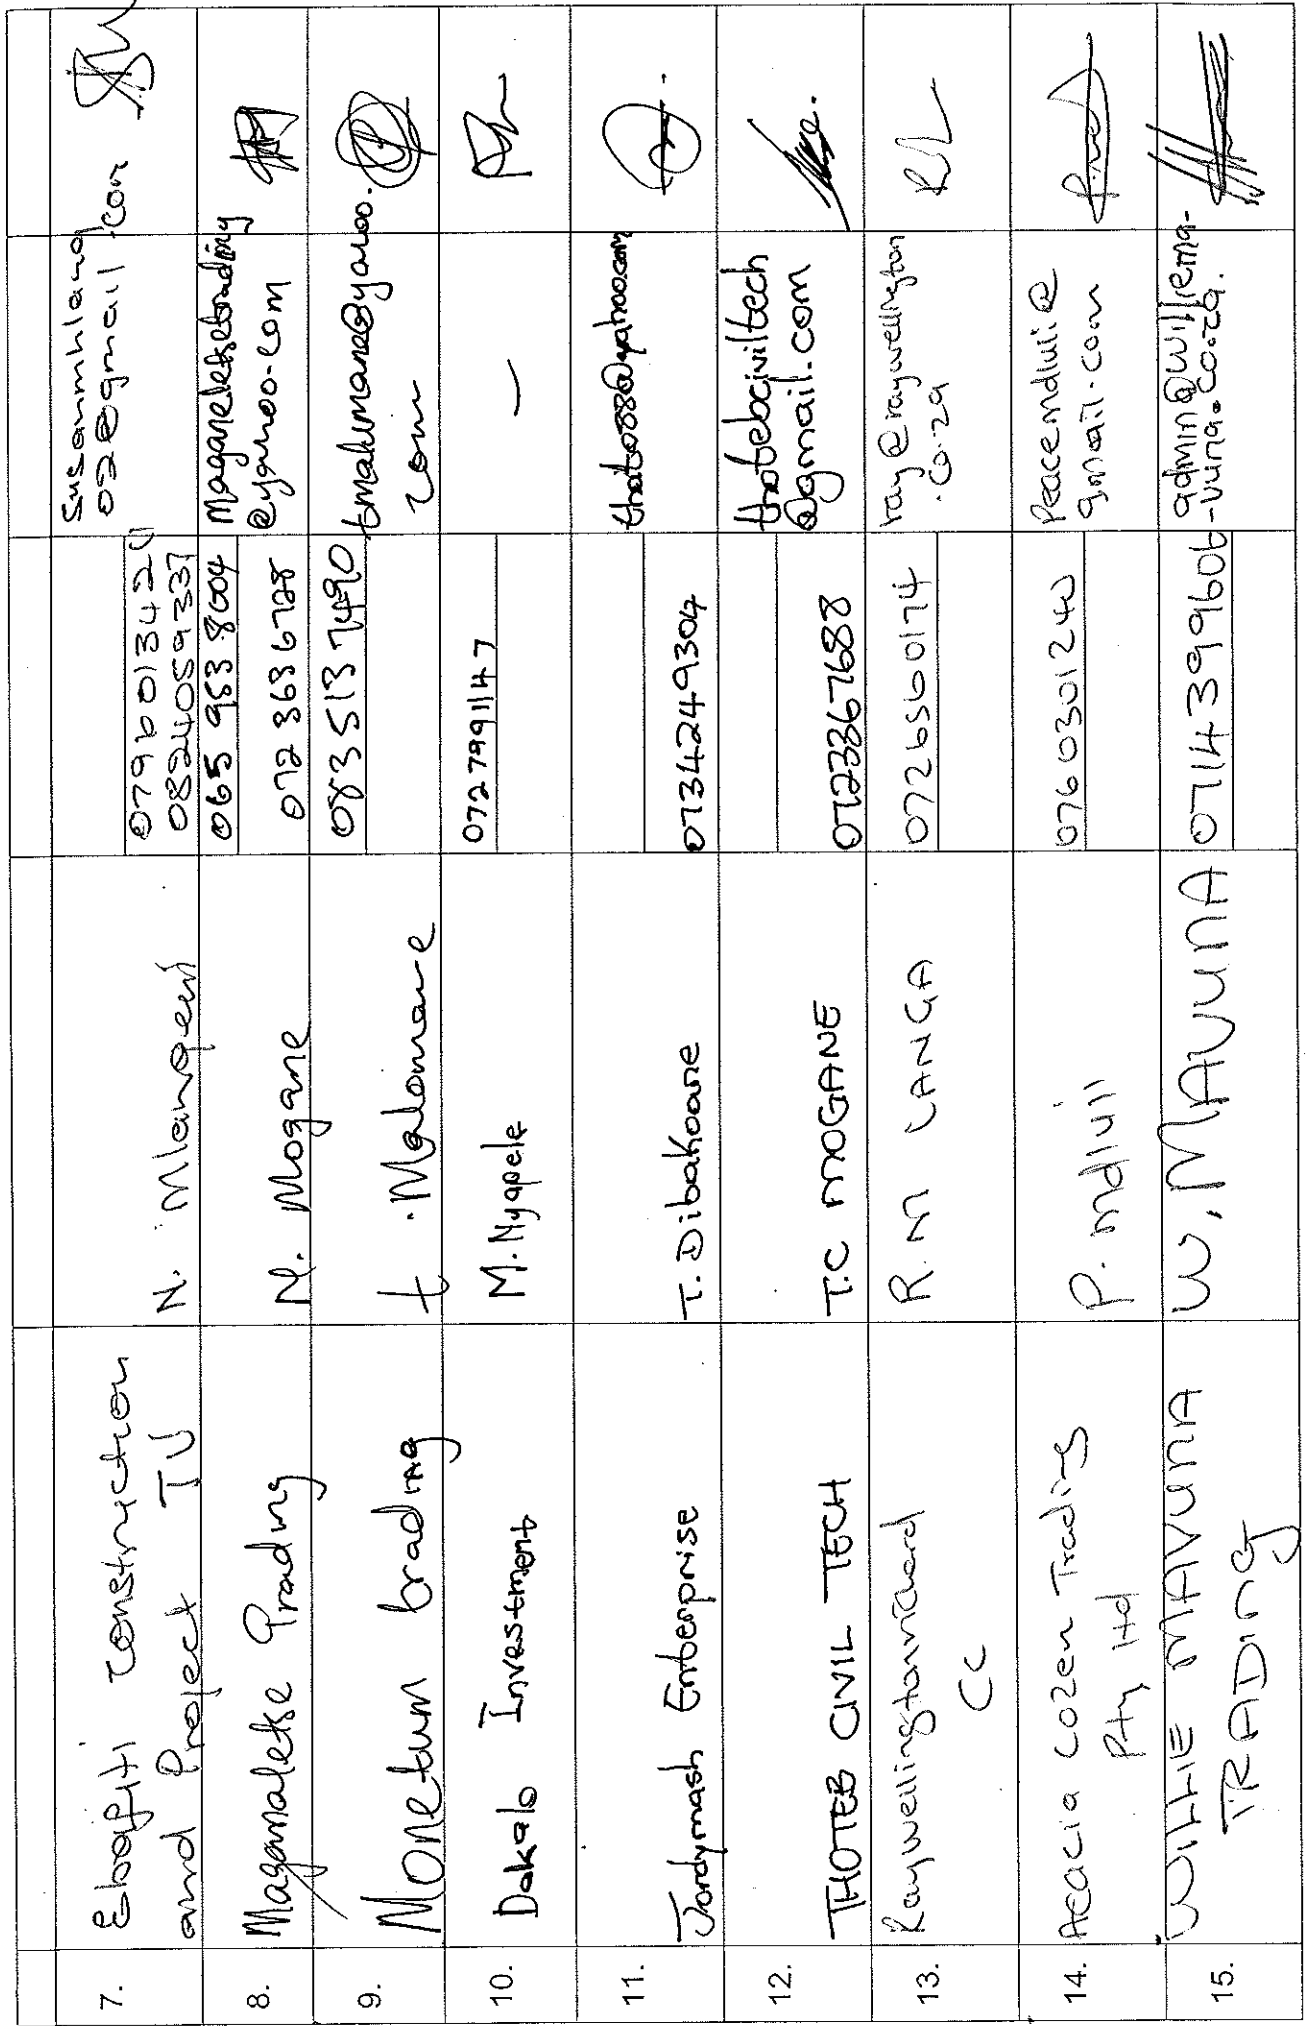 7.
and Project
N. Mlangeni
0796013421
0824059337
Susanmhlang
02@gmail.com
8.
Maganaletse Trading
N. Mogane
065 953 8004
072 363 6728
@yahoo.com
9.
Monetum trading
t. Malomane
083 513 7490
com
10.
Dakalo Investment
M. Nyapele
0727991147
—
11.
Jordymash Enterprise
T. Dibakoane
0734249304
thato088@yahoo.com
12.
THOTEB CIVIL TECH
T.C MOGANE
0723367688
thotebciviltech
@gmail.com
13.
Raywellingtonrichard
CC
R.M LANGA
0726560174
ray@raywellington
.co.za
14.
Acacia Cozen Trading
Pty Ltd
P. mdluli
0760301240
Peacemdluli@
gmail.com
15.
WILLIE MAVUNA
TRADING
W. MAVUNA
0714399606
admin@williema-
-vuna.co.za.